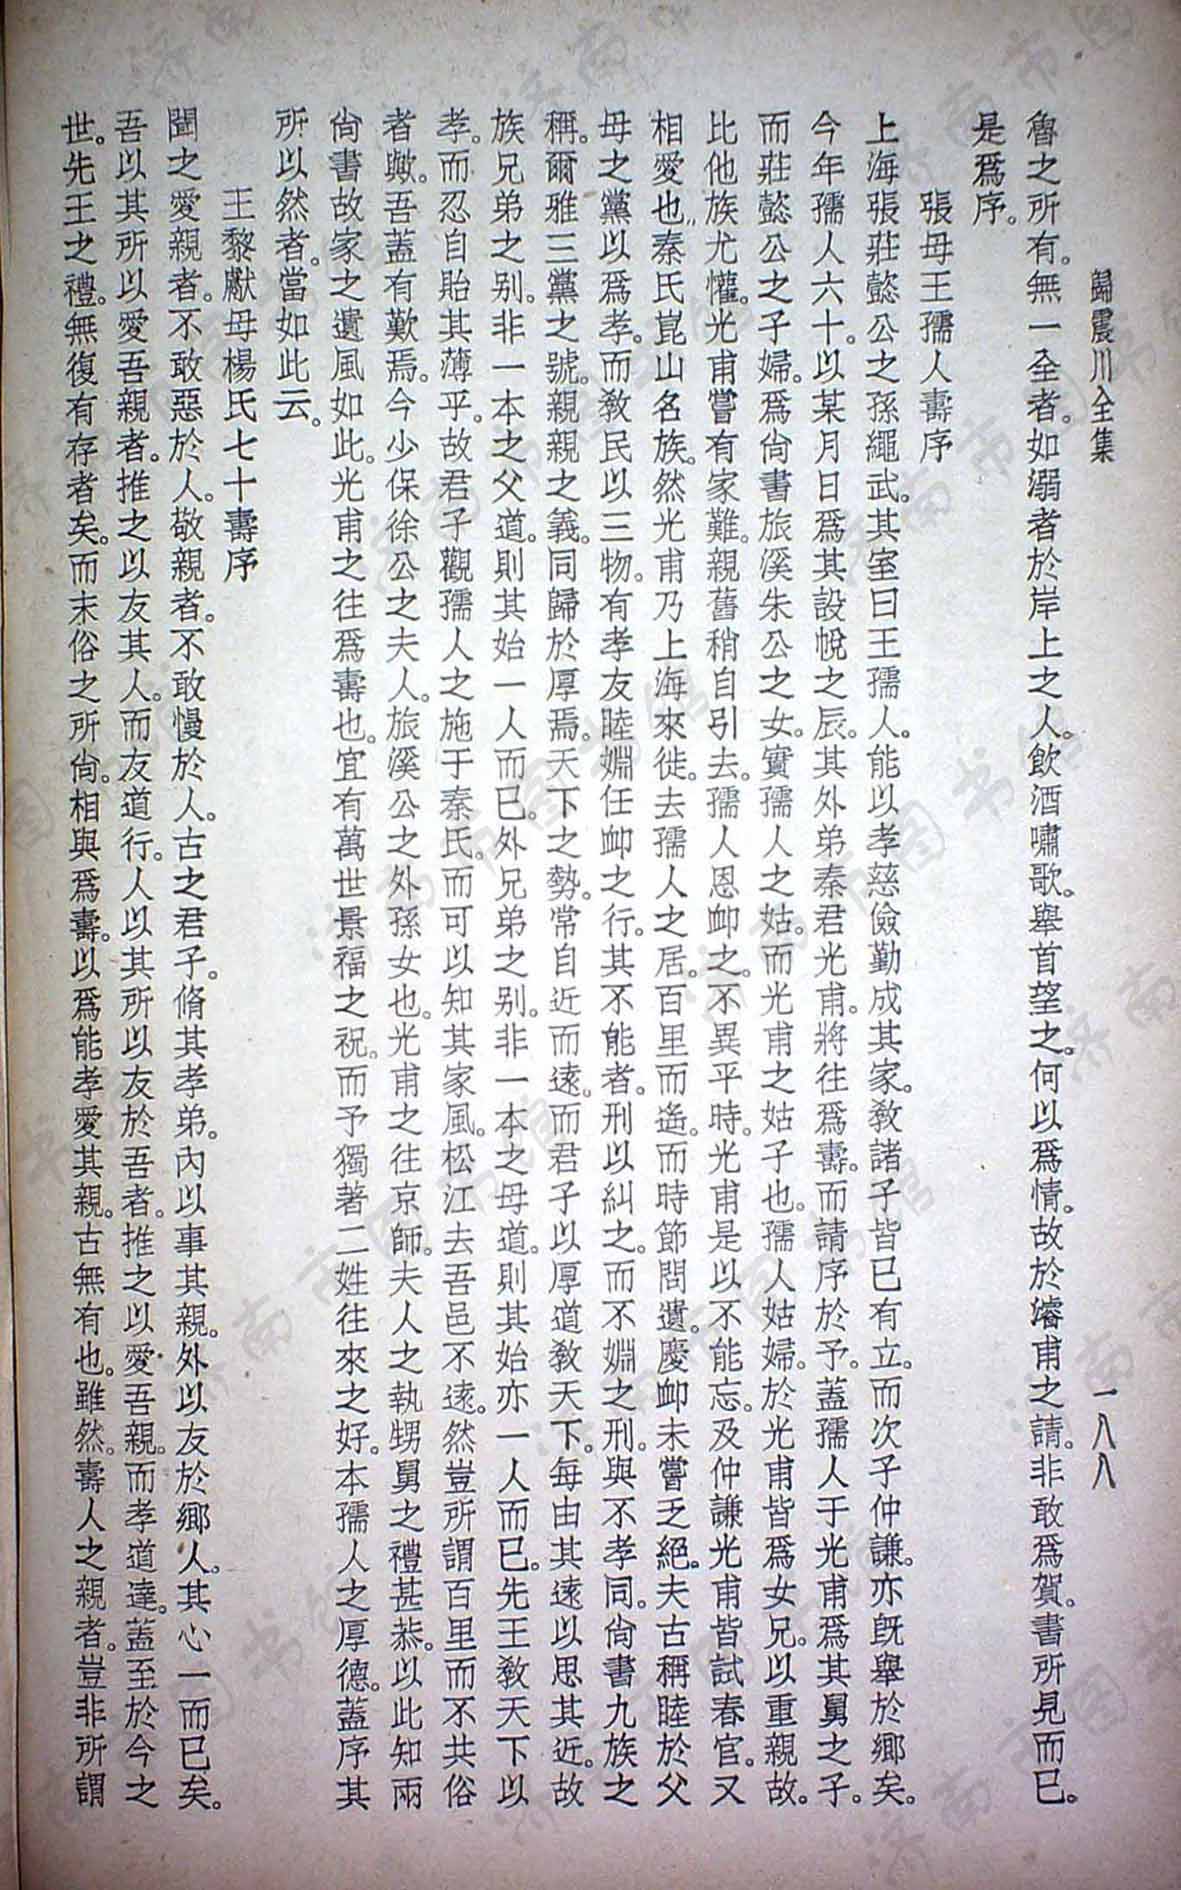 歸震川全集
一八八
魯之所有。無一全者。如溺者於岸上之人。飲酒嘯歌。舉首望之。何以爲情。故於濬甫之請。非敢爲賀。書所見而已。
是爲序。
張母王孺人壽序
上海張莊懿公之孫繩武。其室曰王孺人。能以孝慈儉勤成其家。敎諸子皆已有立。而次子仲謙。亦旣舉於鄉矣。
今年孺人六十。以某月日爲其設帨之辰。其外弟秦君光甫。將往爲壽。而請序於予。蓋孺人于光甫爲其舅之子。
而莊懿公之子婦。爲尙書旅溪朱公之女。實孺人之姑。而光甫之姑子也。孺人姑婦。於光甫皆爲女兄。以重親故。
比他族尤懽。光甫嘗有家難。親舊稍自引去。孺人恩卹之。不異平時。光甫是以不能忘。及仲謙光甫皆試春官。又
相愛也。秦氏崑山名族。然光甫乃上海來徙。去孺人之居。百里而遙。而時節問遺。慶卹未嘗乏絕。夫古稱睦於父
母之黨以爲孝。而敎民以三物。有孝友睦婣任卹之行。其不能者。刑以糾之。而不婣之刑。與不孝同。尙書九族之
稱。爾雅三黨之號。親親之義。同歸於厚焉。天下之勢。常自近而遠。而君子以厚道敎天下。每由其遠以思其近。故
族兄弟之别。非一本之父道。則其始一人而已。外兄弟之别。非一本之母道。則其始亦一人而已。先王敎天下以
孝。而忍自貽其薄乎。故君子觀孺人之施于秦氏。而可以知其家風。松江去吾邑不遠。然豈所謂百里而不共俗
者歟。吾蓋有歎焉。今少保徐公之夫人。旅溪公之外孫女也。光甫之往京師。夫人之執甥舅之禮甚恭。以此知兩
尙書故家之遺風如此。光甫之往爲壽也。宜有萬世景福之祝。而予獨著二姓往來之好。本孺人之厚德。蓋序其
所以然者。當如此云。
王黎獻母楊氏七十壽序
聞之愛親者。不敢惡於人。敬親者。不敢慢於人。古之君子。脩其孝弟。內以事其親。外以友於鄉人。其心一而已矣。
吾以其所以愛吾親者。推之以友其人。而友道行。人以其所以友於吾者。推之以愛吾親。而孝道達。蓋至於今之
世。先王之禮。無復有存者矣。而末俗之所尙。相與爲壽。以爲能孝愛其親。古無有也。雖然。壽人之親者。豈非所謂